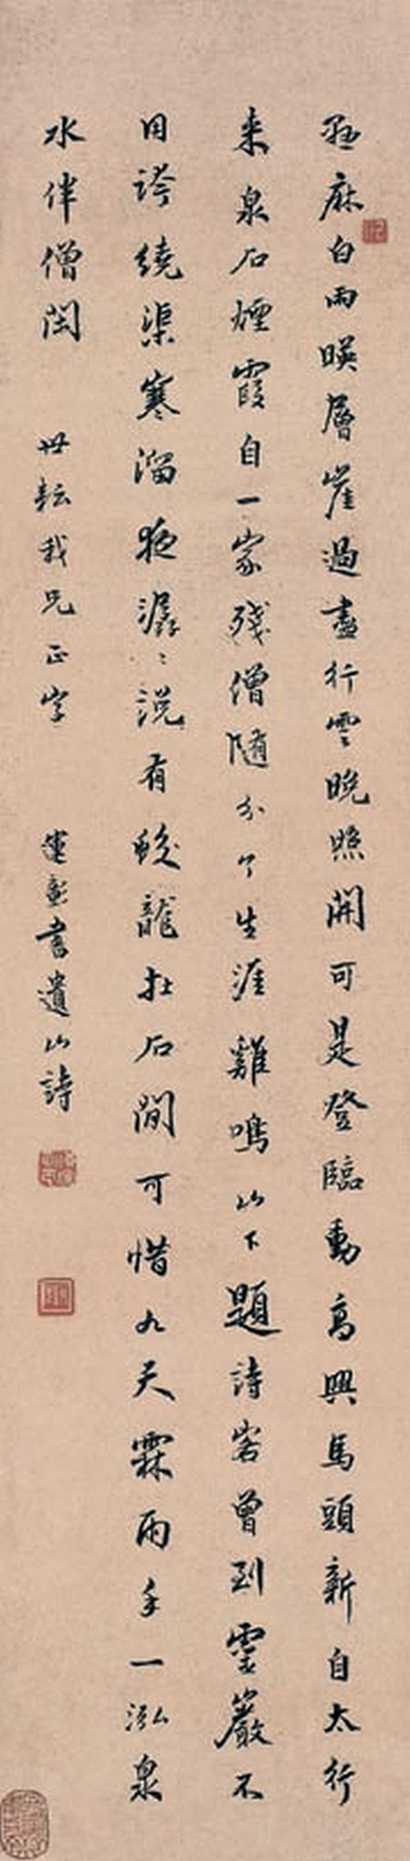 亟麻白雨暎層崖過盡行雲晚照開可是登臨動高興馬頭新自太行
来泉石煙霞自一家殘僧隨分了生涯雞鳴山下題詩客曾到靈巖不
用誇繞渠寒溜夜潺〻説有蛟龍在石間可惜九天霖雨手一泓泉
水伴僧閒
世耘我兄正字
運彰書遺山詩